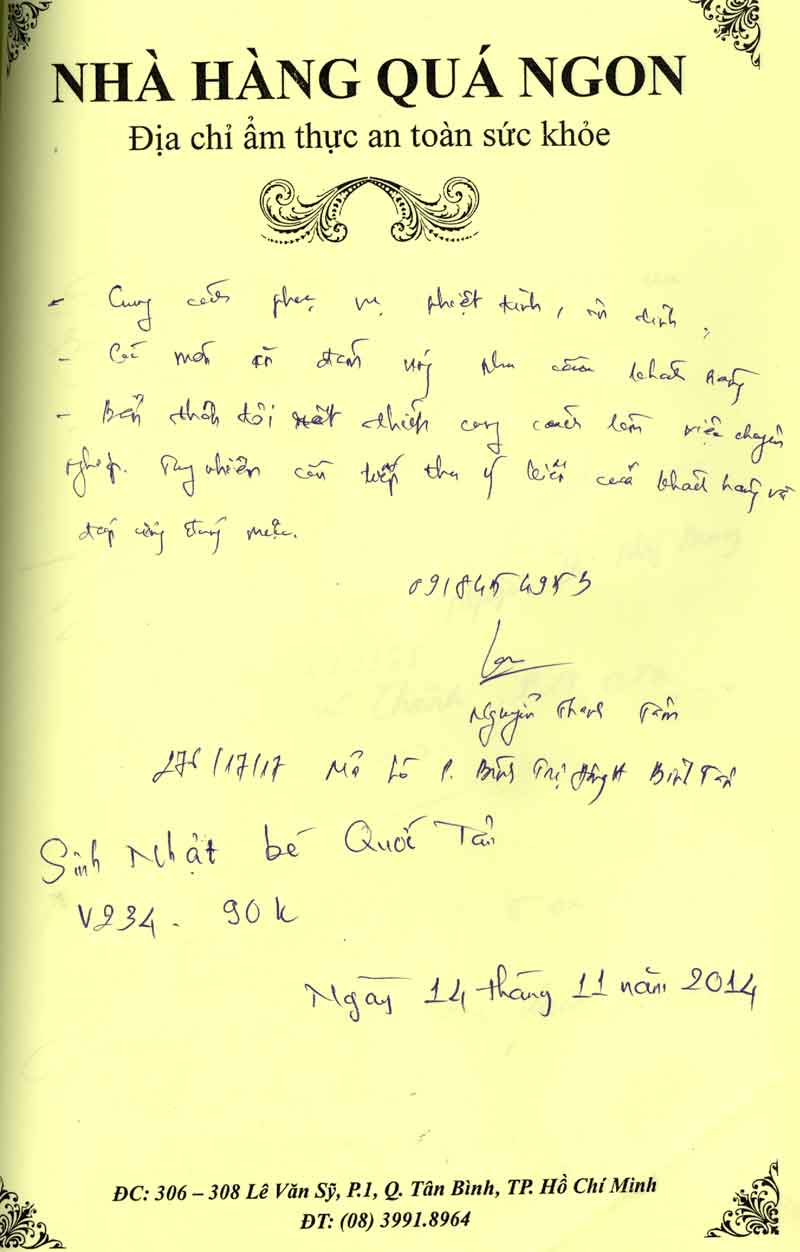 NHÀ HÀNG QUÁ NGON
Địa chỉ ẩm thực an toàn sức khỏe
- Cung cách phục vụ nhiệt tình, ổn định,
- Các món ăn đáp ứng nhu cầu khách hàng
- Bản thân tôi rất thích cung cách làm việc chuyên
nghiệp. Tuy nhiên cần tiếp thu ý kiến của khách hàng và
đáp ứng
Nguyễn Thanh Tâm
Mã Lò P. Bình Trị Đông A Bình Tân
Sinh Nhật bé Quốc
V234 - 90 k
Ngày 14 tháng 11 năm 2014
ĐC: 306 – 308 Lê Văn Sỹ, P.1, Q. Tân Bình, TP. Hồ Chí Minh
ĐT: (08) 3991.8964